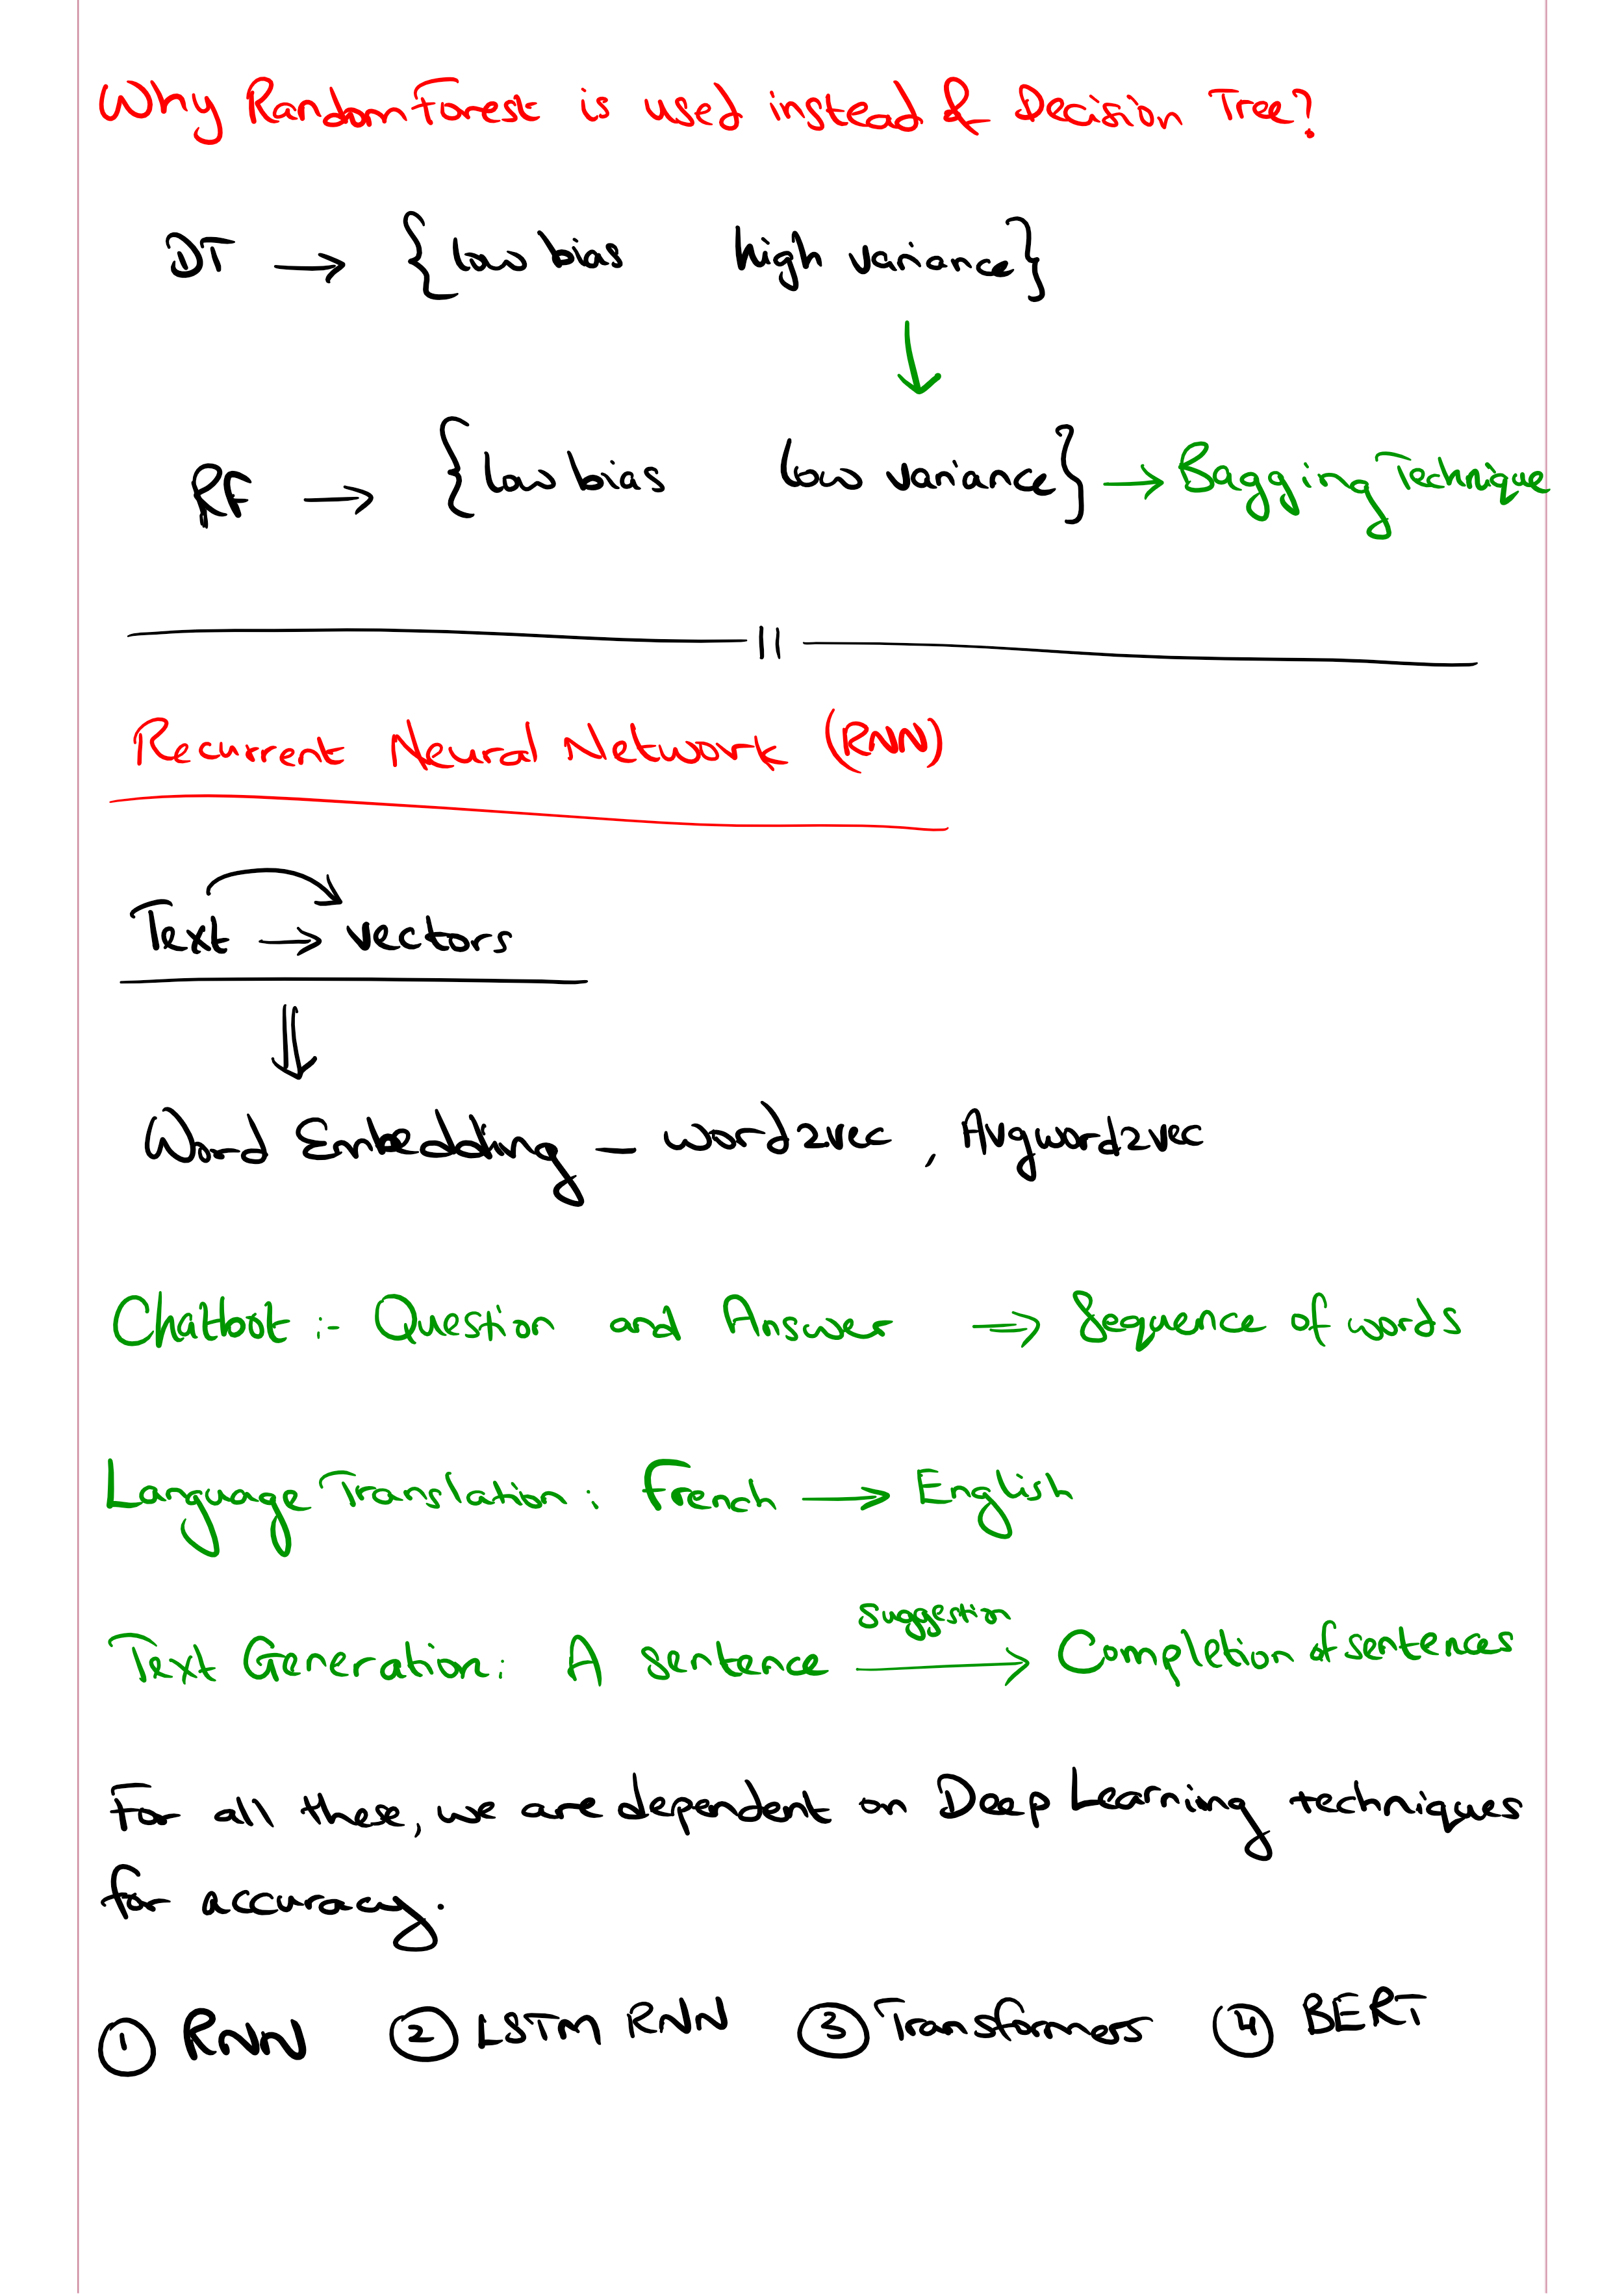 Why Random Forest is used instead of Decision Tree?
DT → {low bias high variance}
↓
RF → {low bias low variance} → Bagging Technique
Recurrent Neural Network (RNN)
Text → vectors
⇓
Word Embedding – word2vec, Avgword2vec
Chatbot :- Question and Answer → Sequence of words
Language Translation : French → English
suggestion
Text Generation: A sentence → Completion of sentences
For all these, we are dependent on Deep Learning techniques
for accuracy.
① RNN ② LSTM RNN ③ Transformers ④ BERT